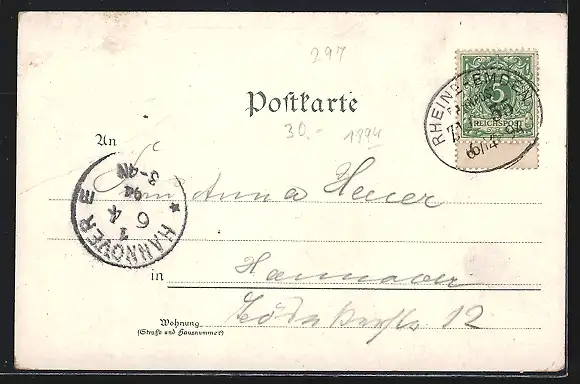 297
Postkarte
30.- 1894
5
REICHSPOST
RHEINE-EMDEN
An
Anna Heuer
HANNOVER
6 4
94
3-4N
in Hannover
12
Wohnung
(Straße und Hausnummer)